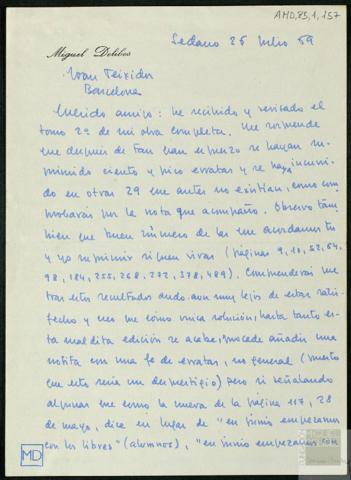 AMD,85,1,157
Sedano 25 Julio 69
Miguel Delibes
Joan Teixidor
Barcelona
Querido amigo: he recibido y revisado el
tomo 2º de mi obra completa. Me sorprende
que después de tan gran esfuerzo se hayan su-
primido ciento y pico erratas y se haya incurri-
do en otras 29 que antes no existían, como com-
probarás por la nota que acompaño. Observo tam-
bien que buen número de las que acordamos tu
y yo suprimir siguen vivas (páginas 9, 10, 52, 64,
98, 184, 255, 268, 272, 378, 489). Comprenderás que
tras estos resultados ando aun muy lejos de estar satis-
fecho y veo que como única solución, hasta tanto es-
ta maldita edición se acabe, procede añadir una
notita con una fe de erratas, no general (puesto
que esto sería un desprestigio) pero si señalando
algunas que como la nueva de la página 117, 28
de mayo, dice en lugar de "en junio empezamos
con los libres" (alumnos), "en junio empezamos con
MD